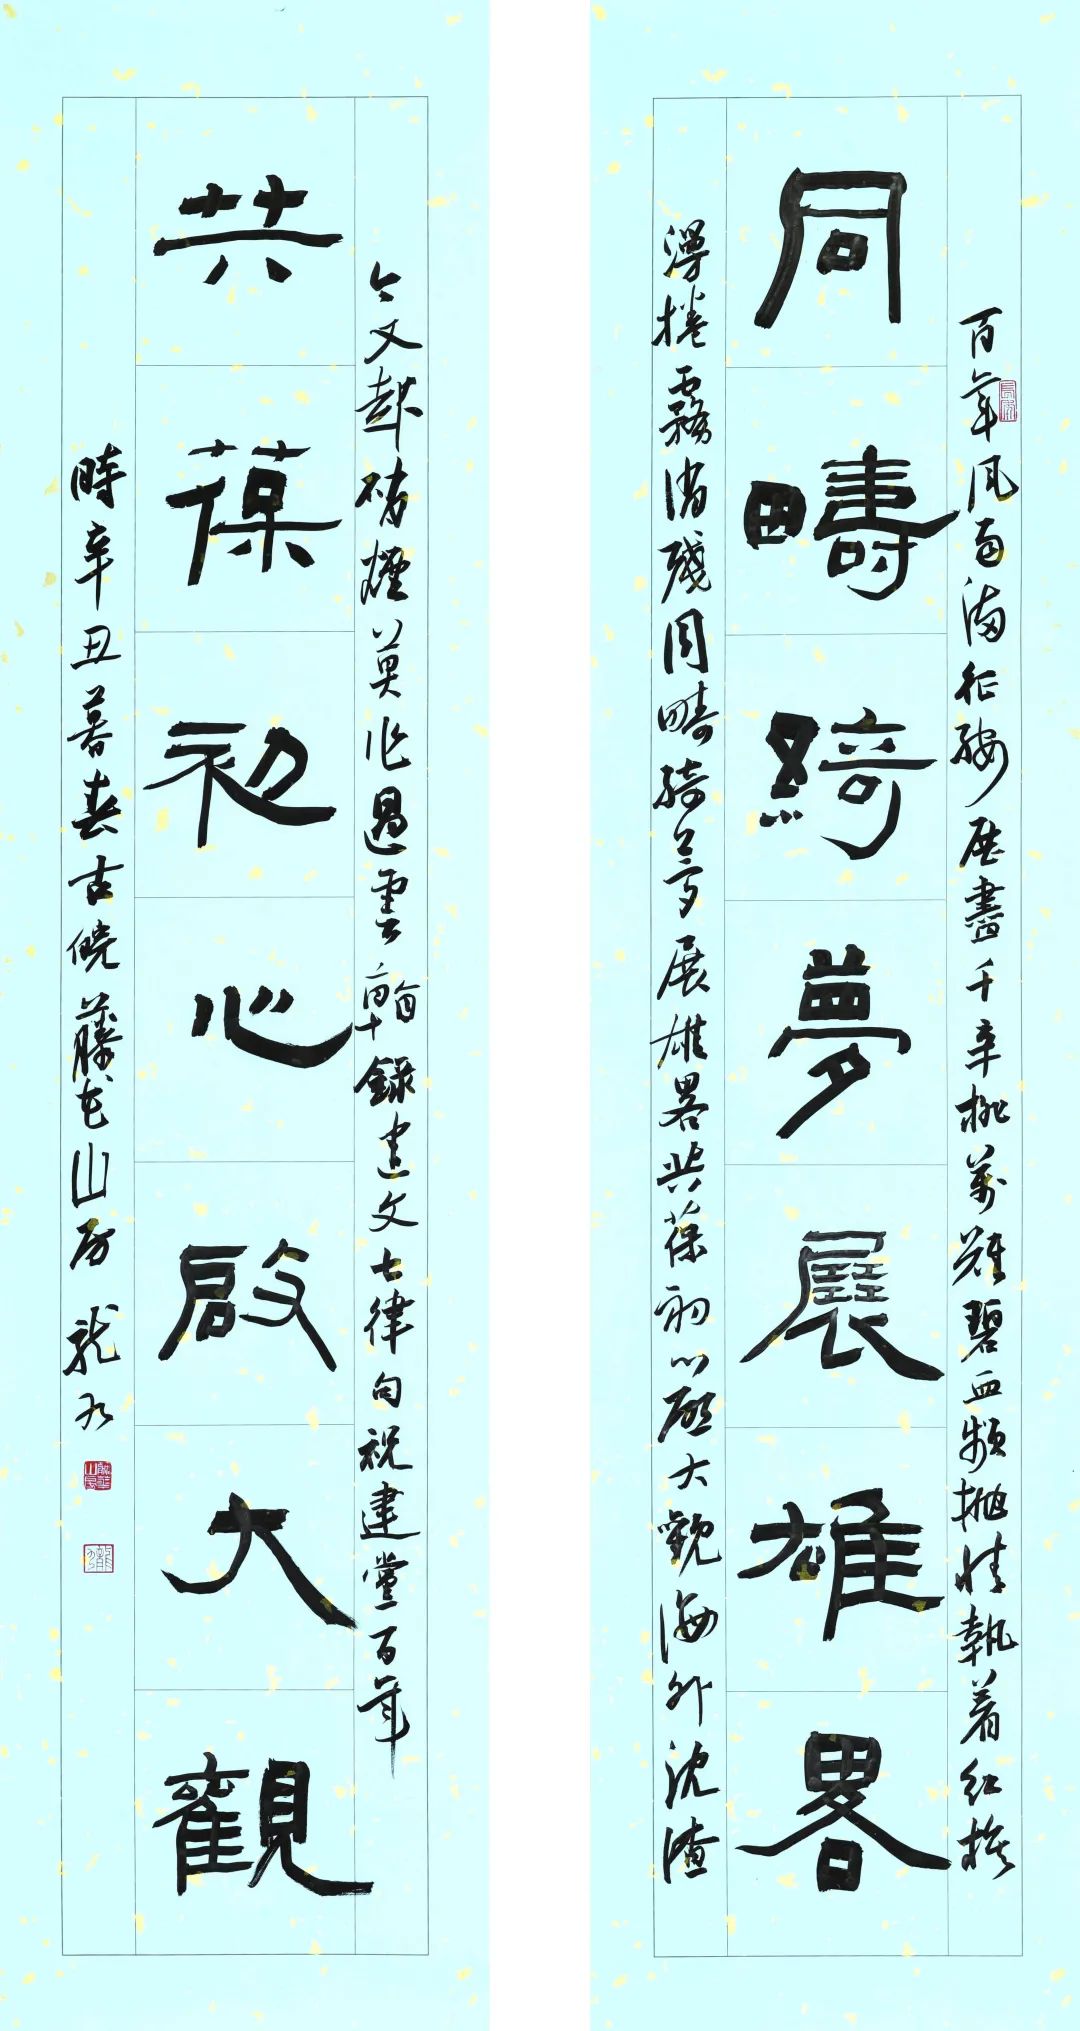 百年風雨滿征鞍歷盡千辛挑萬難碧血頻拋情執着紅旗
同疇綺夢展雄畧
漫捲霧消殘同疇綺夢展雄畧共葆初心啟大觀海外沈渣
今又起硝煙莫作過雲看錄建文七律句祝建黨百年
共葆初心啟大觀
時辛丑暮春古饒藤花山房 龍